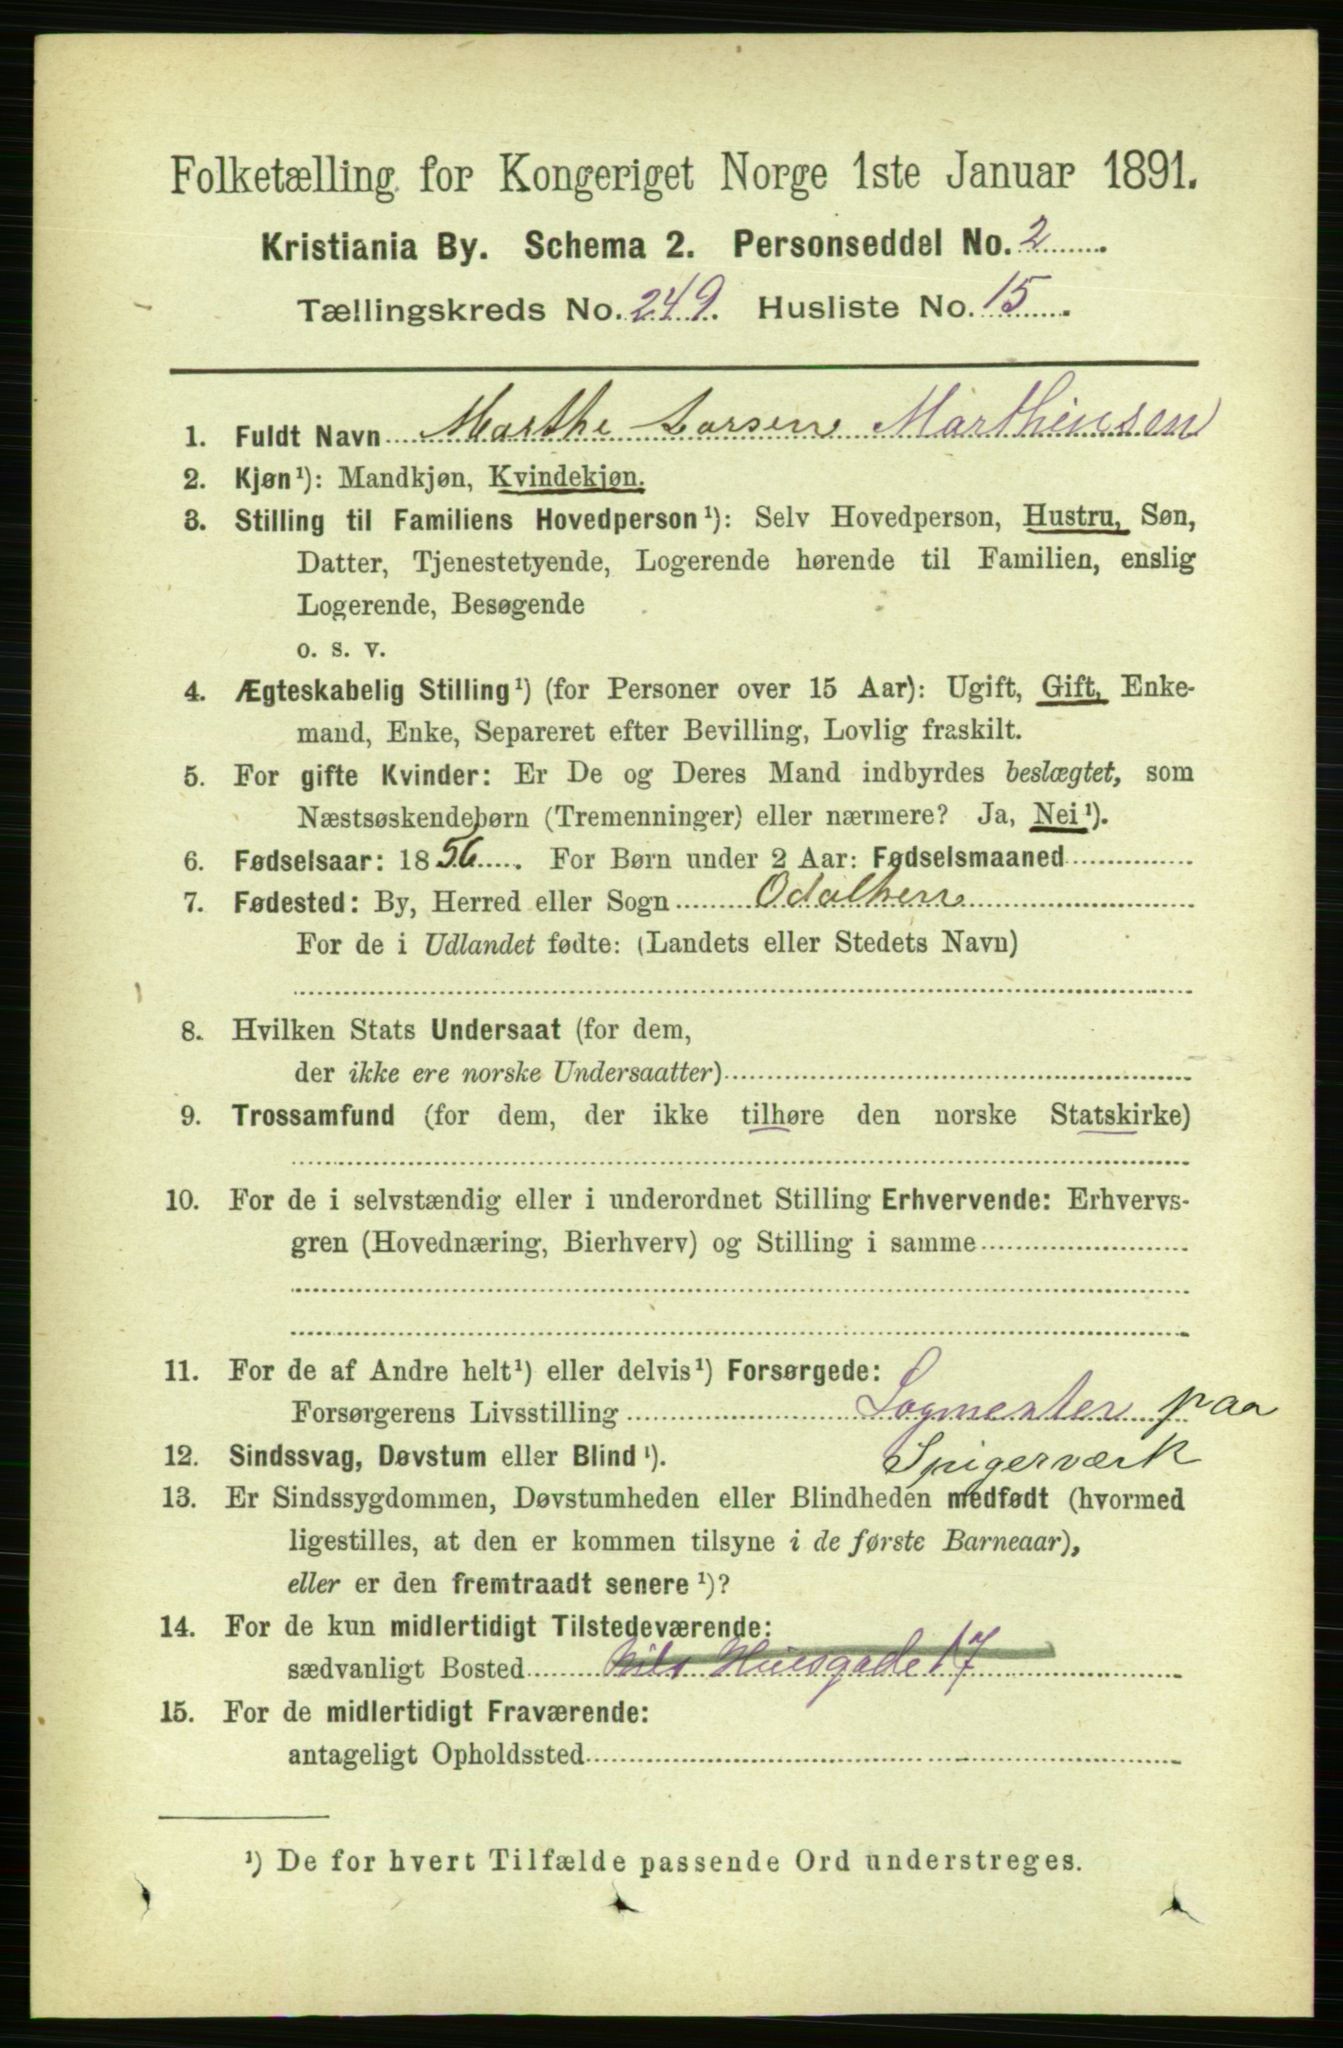 Folketælling for Kongeriget Norge 1ste Januar 1891.
Kristiania By. Schema 2. Personseddel No. 2
Tællingskreds No. 249. Husliste No. 15
1. Fuldt Navn Marthe Larsen Marthinsen
2. Kjøn¹): Mandkjøn, Kvindekjøn.
3. Stilling til Familiens Hovedperson¹): Selv Hovedperson, Hustru, Søn,
Datter, Tjenestetyende, Logerende hørende til Familien, enslig
Logerende, Besøgende
o. s. v.
4. Ægteskabelig Stilling¹) (for Personer over 15 Aar): Ugift, Gift, Enke-
mand, Enke, Separeret efter Bevilling, Lovlig fraskilt.
5. For gifte Kvinder: Er De og Deres Mand indbyrdes beslægtet, som
Næstsøskendebørn (Tremenninger) eller nærmere? Ja, Nei¹).
6. Fødselsaar: 1856. For Børn under 2 Aar: Fødselsmaaned
7. Fødested: By, Herred eller Sogn Odalhen
For de i Udlandet fødte: (Landets eller Stedets Navn)
8. Hvilken Stats Undersaat (for dem,
der ikke ere norske Undersaatter)
9. Trossamfund (for dem, der ikke tilhøre den norske Statskirke)
10. For de i selvstændig eller i underordnet Stilling Erhvervende: Erhvervs-
gren (Hovednæring, Bierhverv) og Stilling i samme
11. For de af Andre helt¹) eller delvis¹) Forsørgede:
Forsørgerens Livsstilling Sogmester paa
Spigerværk
12. Sindssvag, Døvstum eller Blind¹).
13. Er Sindssygdommen, Døvstumheden eller Blindheden medfødt (hvormed
ligestilles, at den er kommen tilsyne i de første Barneaar),
eller er den fremtraadt senere¹)?
14. For de kun midlertidigt Tilstedeværende:
sædvanligt Bosted Nils Huusgade 17
15. For de midlertidigt Fraværende:
antageligt Opholdssted
¹) De for hvert Tilfælde passende Ord understreges.